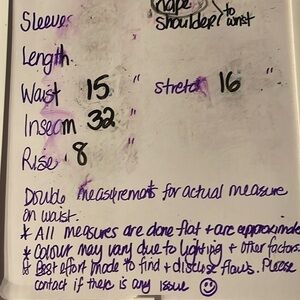 Sleeves nape
Shoulder to wrist
Length
Waist 15 " stretch 16 "
Inseam 32 "
Rise 8
Double measurements for actual measure
on waist.
* All measures are done flat + are approximate
* Colour may vary due to lighting + other factors.
* Best effort made to find + disclose flaws. Please
contact if there is any issue ☺